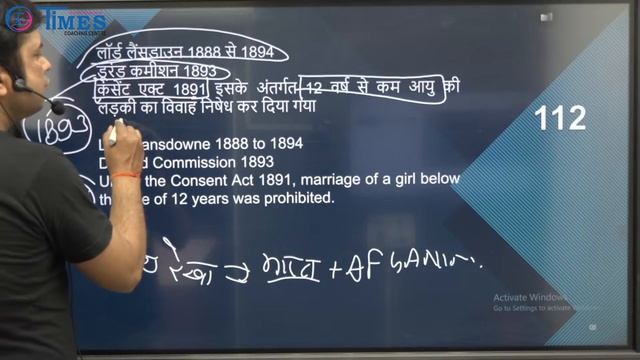 TIMES
COACHING CENTRE
लॉर्ड लैंसडाउन 1888 से 1894
डूरंड कमीशन 1893
कंसेंट एक्ट 1891 इसके अंतर्गत 12 वर्ष से कम आयु की
लड़की का विवाह निषेध कर दिया गया
1893
112
ansdowne 1888 to 1894
D d Commission 1893
U the Consent Act 1891, marriage of a girl below
th e of 12 years was prohibited.
रेखा → भारत +
Activate Windows
Go to Settings to activate Windows.